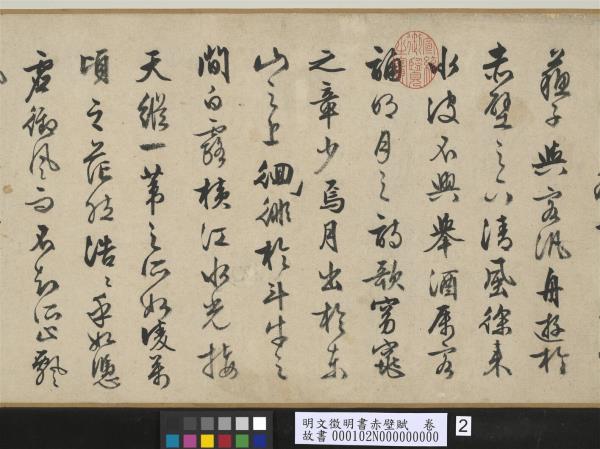 蘇子與客汎舟遊於
赤壁之下清風徐來
水波不興舉酒屬客
誦明月之詩歌窈窕
之章少焉月出於東
山之上徊徘於斗牛之
間白露橫江水光接
天縱一葦之所如凌萬
頃之茫然浩〻乎如憑
虛御風而不知所止飄
明文徵明書赤壁賦 卷
故書 000102N000000000
2